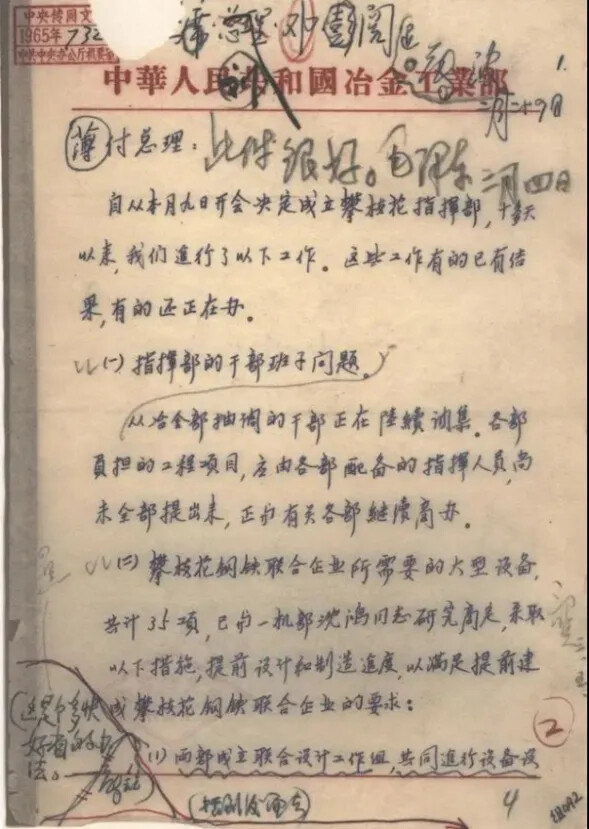 中央传阅文
1965年 732
席、总理、邓、彭阅
中華人民共和國冶金工業部
1.
二月二十9日
薄付总理：
此件很好。毛泽东 三月四日
自从本月九日开会决定成立攀枝花指挥部，十多天
以来，我们進行了以下工作。这些工作有的已有结
果，有的还正在办。
(一) 指挥部的干部班子问题。
从冶金部抽调的干部正在陸續调集。各部
負担的工程项目，应由各部配备的指挥人员，尚
未全部提出来，正与有关各部继續商办。
(二) 攀枝花钢铁联合企业所需要的大型设备，
共计35项，已与一机部沈鴻同志研究商定，采取
以下措施，提前设计和制造進度，以满足提前建
成攀枝花钢铁联合企业的要求：
(这是个多快
好省的办
法。
(1) 两部成立联合设计工作组，共同進行设备设
2
4